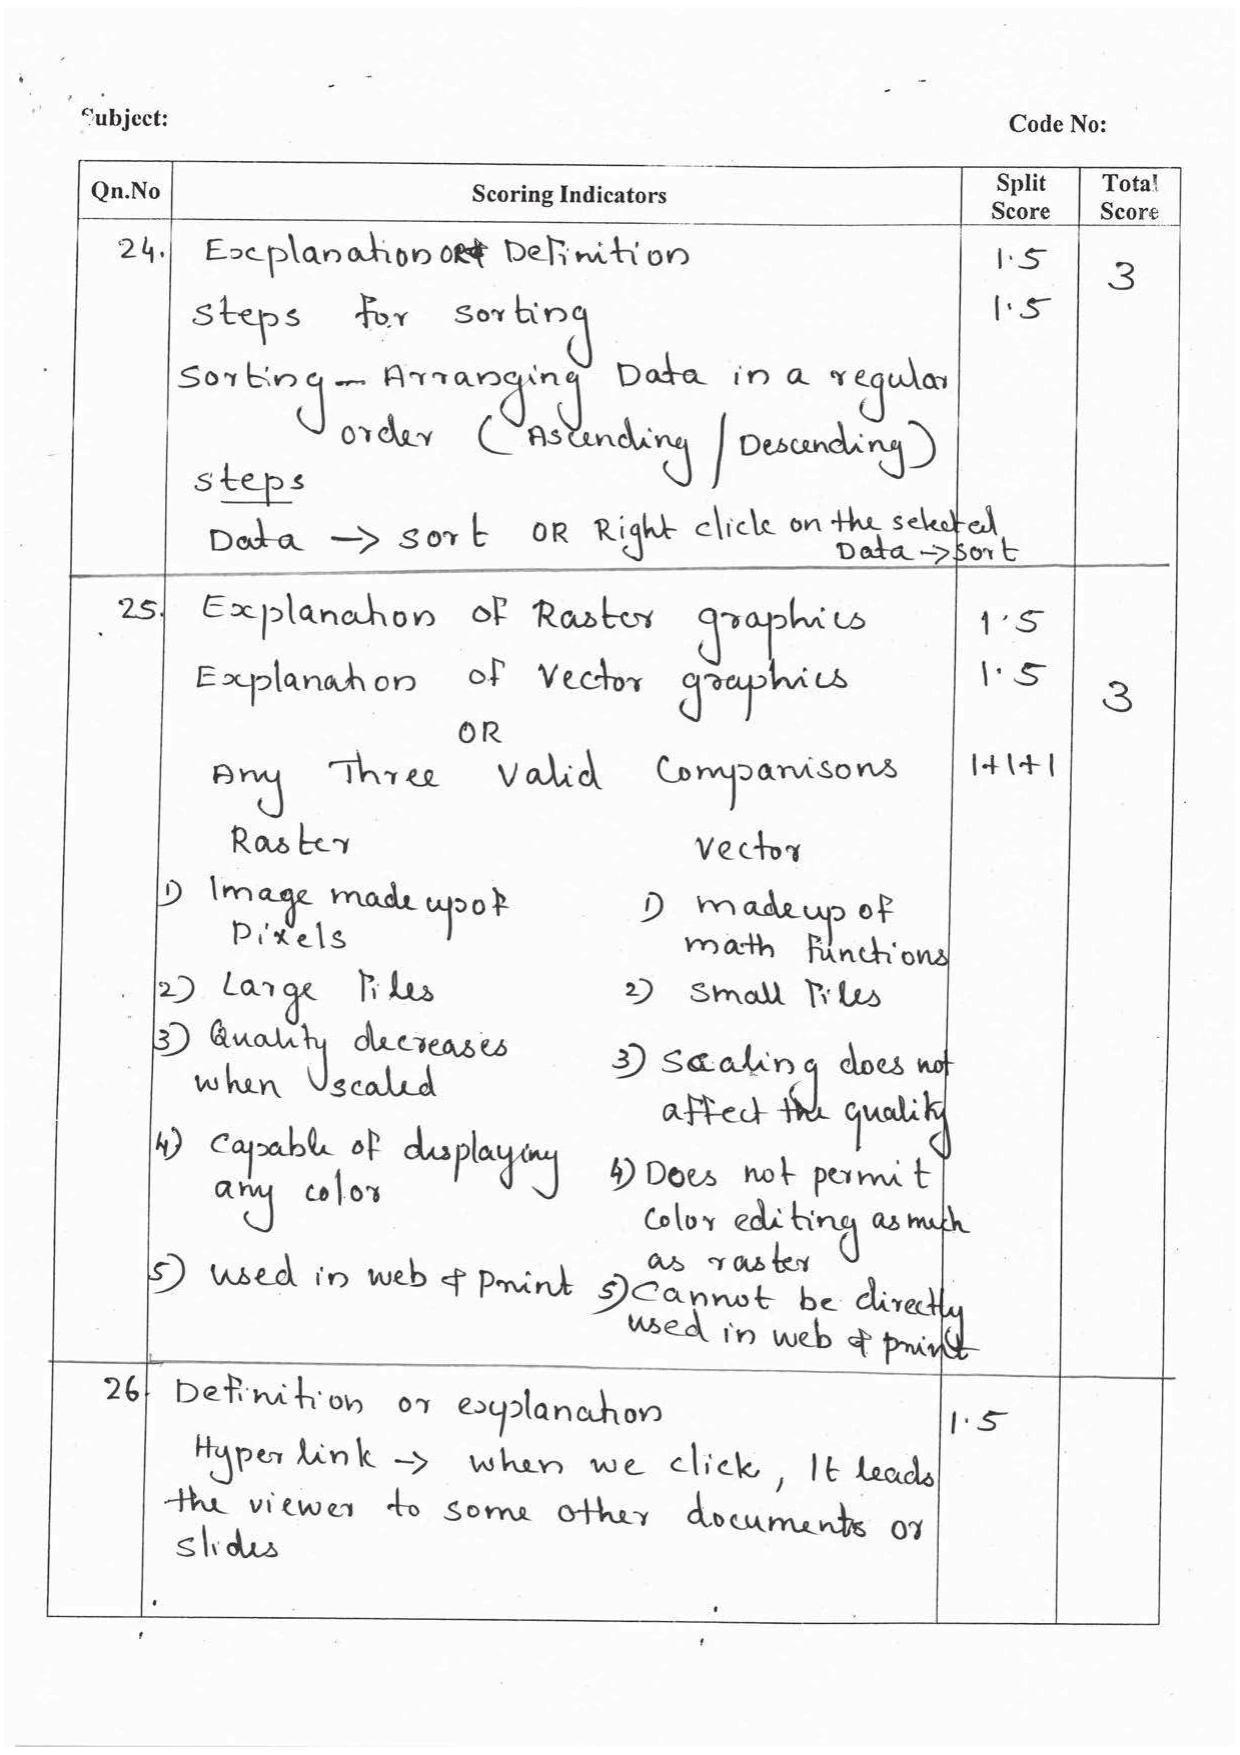 Subject:
Code No:
Qn.No Scoring Indicators Split Score Total Score
24. Explanation OR Definition 1.5 3
steps for sorting 1.5
Sorting - Arranging Data in a regular
order (Ascending / Descending)
steps
Data → sort OR Right click on the selected
Data → sort
25. Explanation of Raster graphics 1.5
Explanation of Vector graphics 1.5 3
OR
Any Three Valid Comparisons 1+1+1
Raster Vector
1) Image made up of 1) made up of
Pixels math functions
2) Large files 2) small files
3) Quality decreases 3) Scaling does not
when scaled affect the quality
4) capable of displaying 4) Does not permit
any color color editing as much
as raster
5) used in web & print 5) Cannot be directly
used in web & print
26. Definition or explanation 1.5
Hyper link → when we click, It leads
the viewer to some other documents or
slides